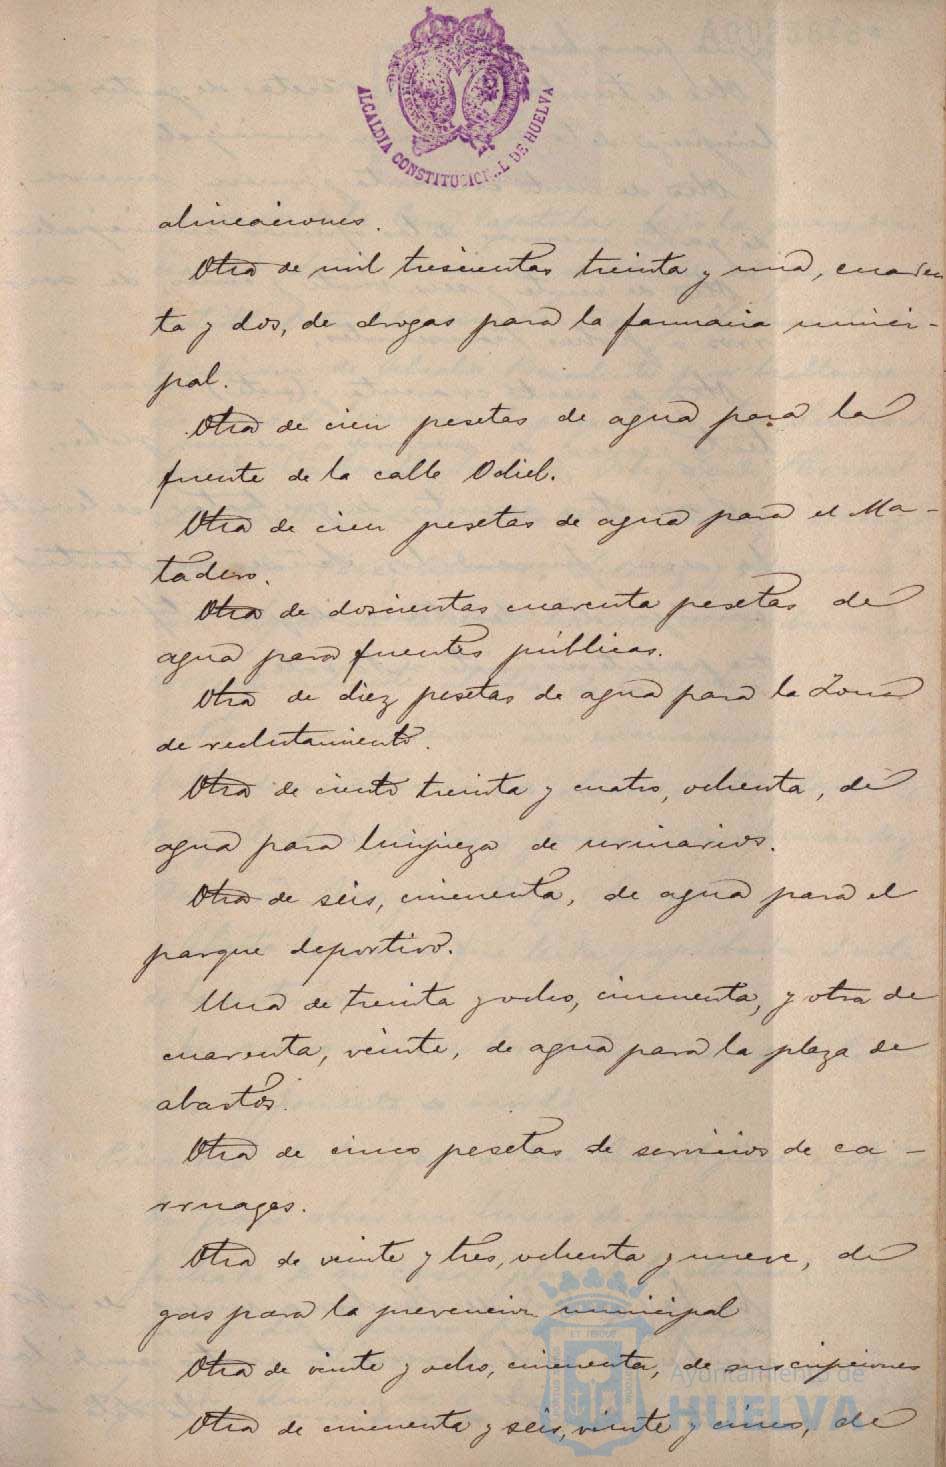 ALCALDIA CONSTITUCIONAL DE HUELVA
alineaciones.
Otra de mil trescientas treinta y una, cuaren
ta y dos, de drogas para la farmacia munici-
pal.
Otra de cien pesetas de agua para la
fuente de la calle Odiel.
Otra de cien pesetas de agua para el Ma-
tadero.
Otra de doscientas cuarenta pesetas de
agua para fuentes públicas.
Otra de diez pesetas de agua para la Zona
de reclutamiento.
Otra de ciento treinta y cuatro, ochenta, de
agua para limpieza de urinarios.
Otra de seis, cincuenta, de agua para el
parque deportivo.
Una de treinta y ocho, cincuenta, y otra de
cuarenta, veinte, de agua para la plaza de
abastos.
Otra de cinco pesetas de servicios de ca-
rruages.
Otra de veinte y tres, ochenta y nueve, de
gas para la prevencion municipal
Otra de veinte y ocho, cincuenta, de suscripciones
Otra de cincuenta y seis, veinte y cinco, de
Ayuntamiento de
HUELVA